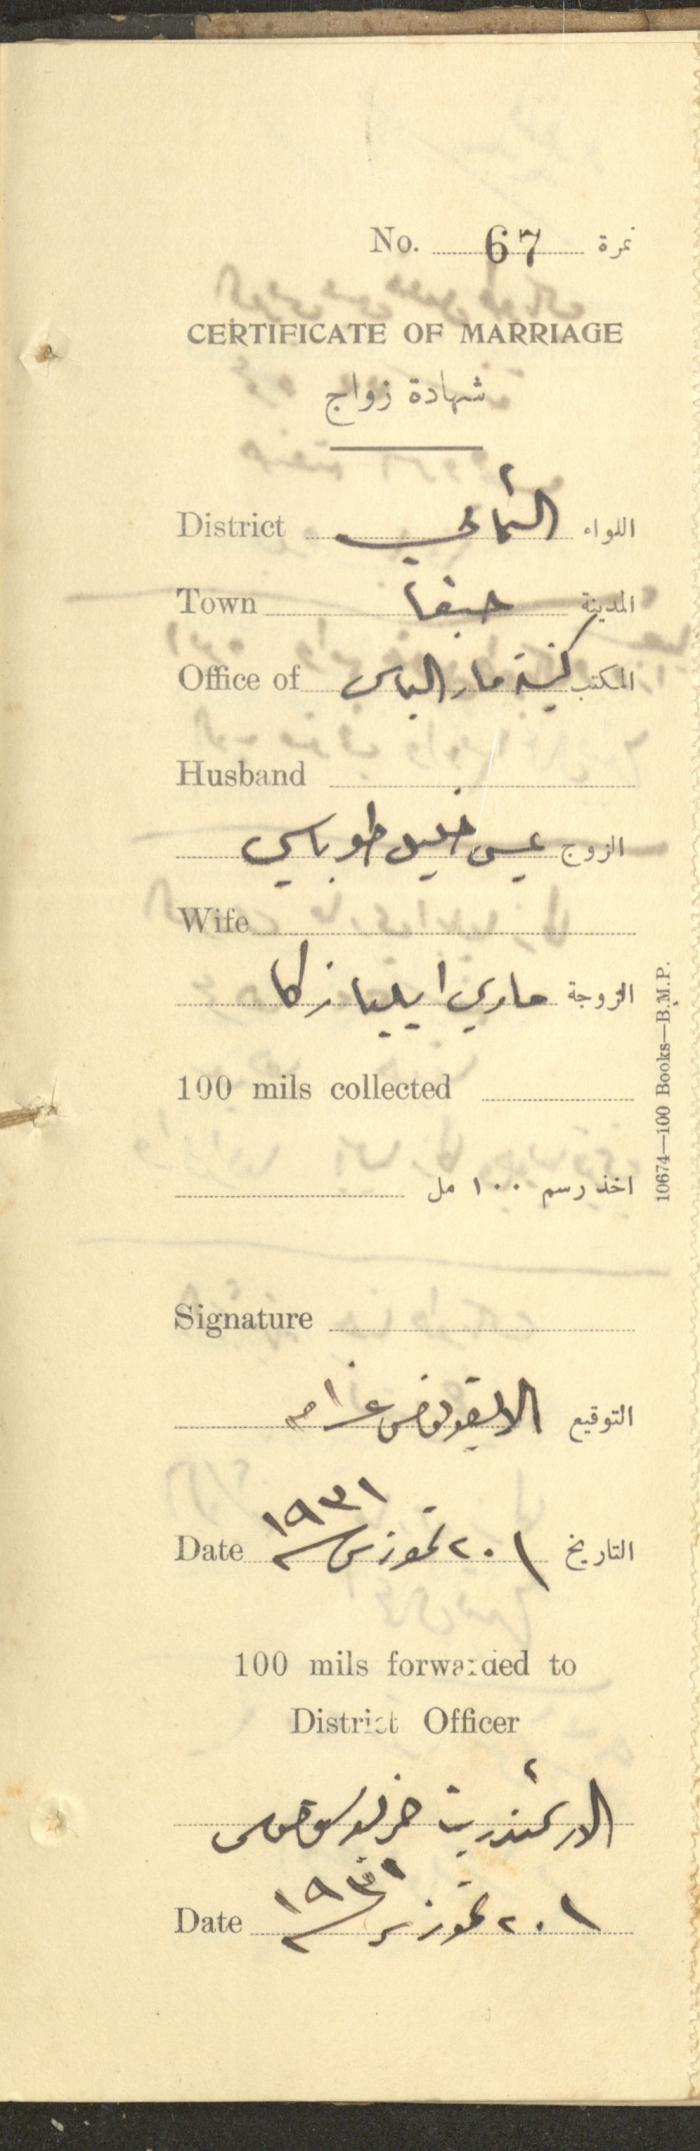 No. 67 نمرة
CERTIFICATE OF MARRIAGE
شهادة زواج
District الشمالي اللواء
Town حيفا المدينة
Office of كنيسة مار الياس المكتب
Husband
عيسى خليل طوباسي الزوج
Wife
ماري ايليا زكا الزوجة
100 mils collected
اخذ رسم ١٠٠ مل
Signature
التوقيع
Date تموز سنة ١٩٣١ التاريخ
100 mils forwarded to
District Officer
الارشمندريت
Date تموز سنة ١٩٣١
10674—100 Books—B.M.P.